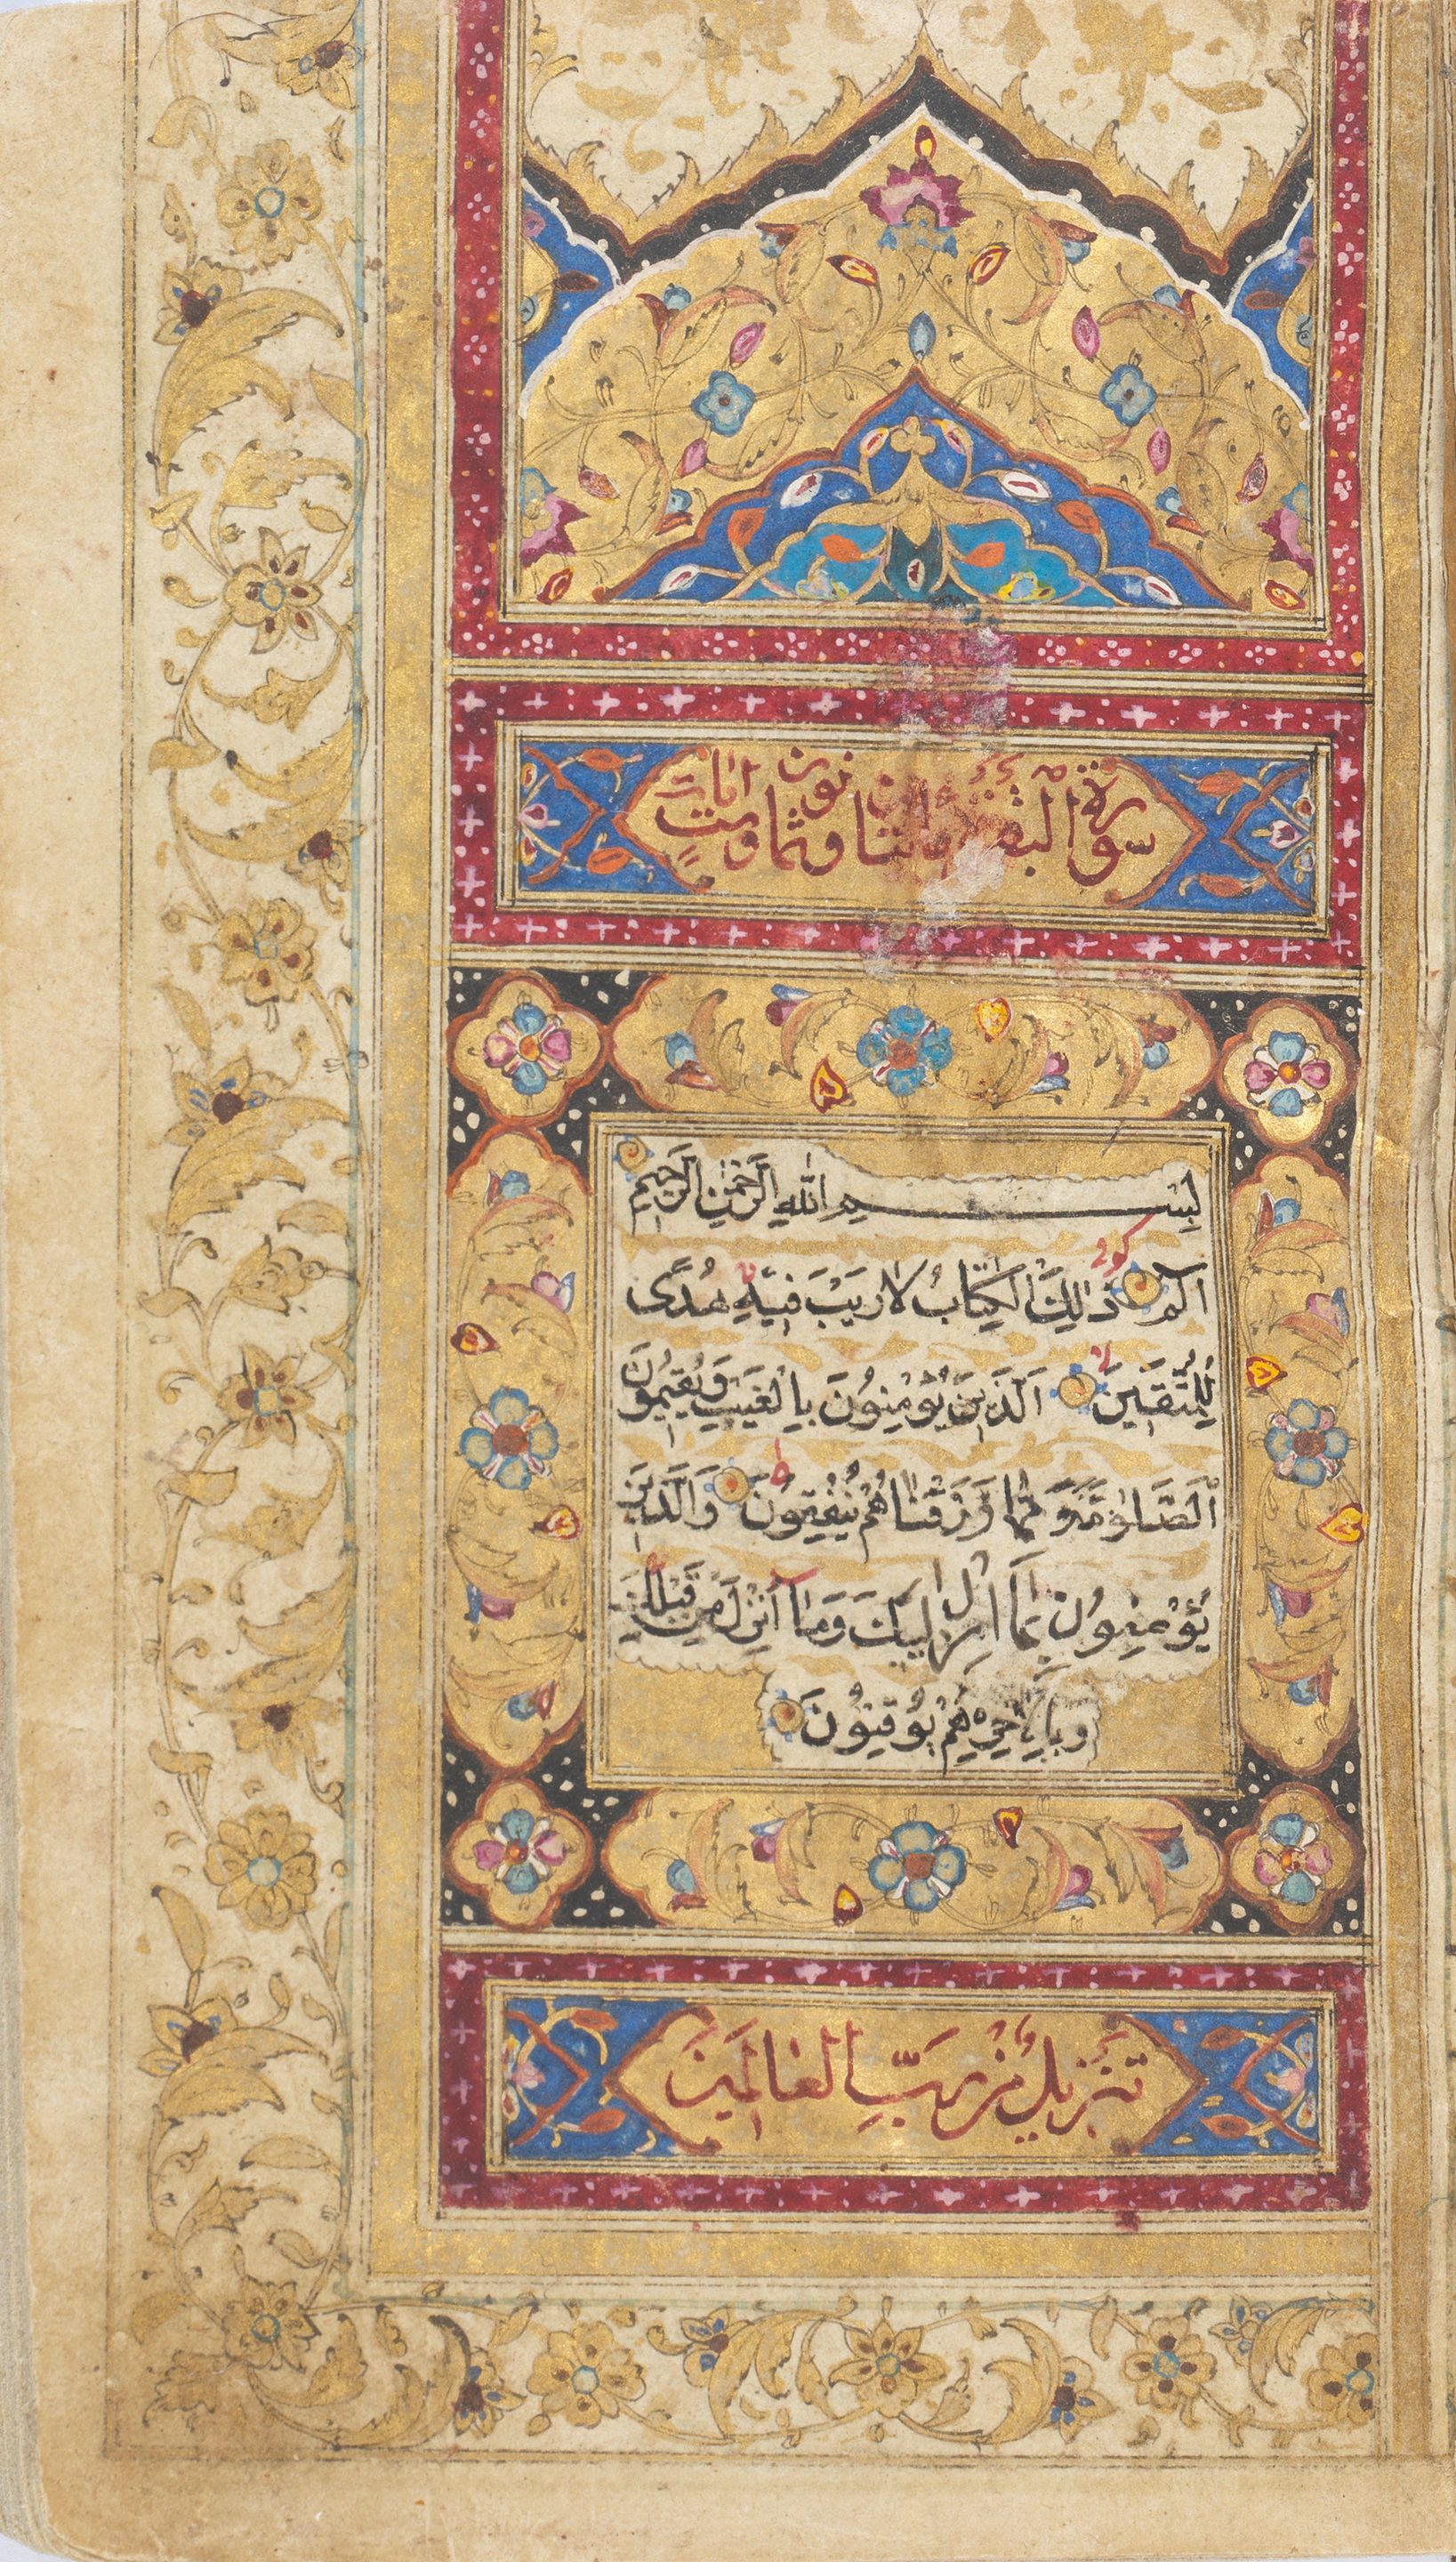 سورة البقرة مائتان وثمانون وست ايات
بِسْمِ اللّٰهِ الرَّحْمٰنِ الرَّحِيمِ
الٓمٓ ذَالِكَ الْكِتَابُ لَا رَيْبَ فِيهِ هُدًى
لِلْمُتَّقِينَ الَّذِينَ يُؤْمِنُونَ بِالْغَيْبِ وَيُقِيمُونَ
الصَّلٰوةَ وَمِمَّا رَزَقْنَاهُمْ يُنْفِقُونَ وَالَّذِينَ
يُؤْمِنُونَ بِمَا اُنْزِلَ اِلَيْكَ وَمَآ اُنْزِلَ مِنْ قَبْلِكَ
وَبِالْاٰخِرَةِ هُمْ يُوقِنُونَ
تنزيل من رَبِّ العالمين